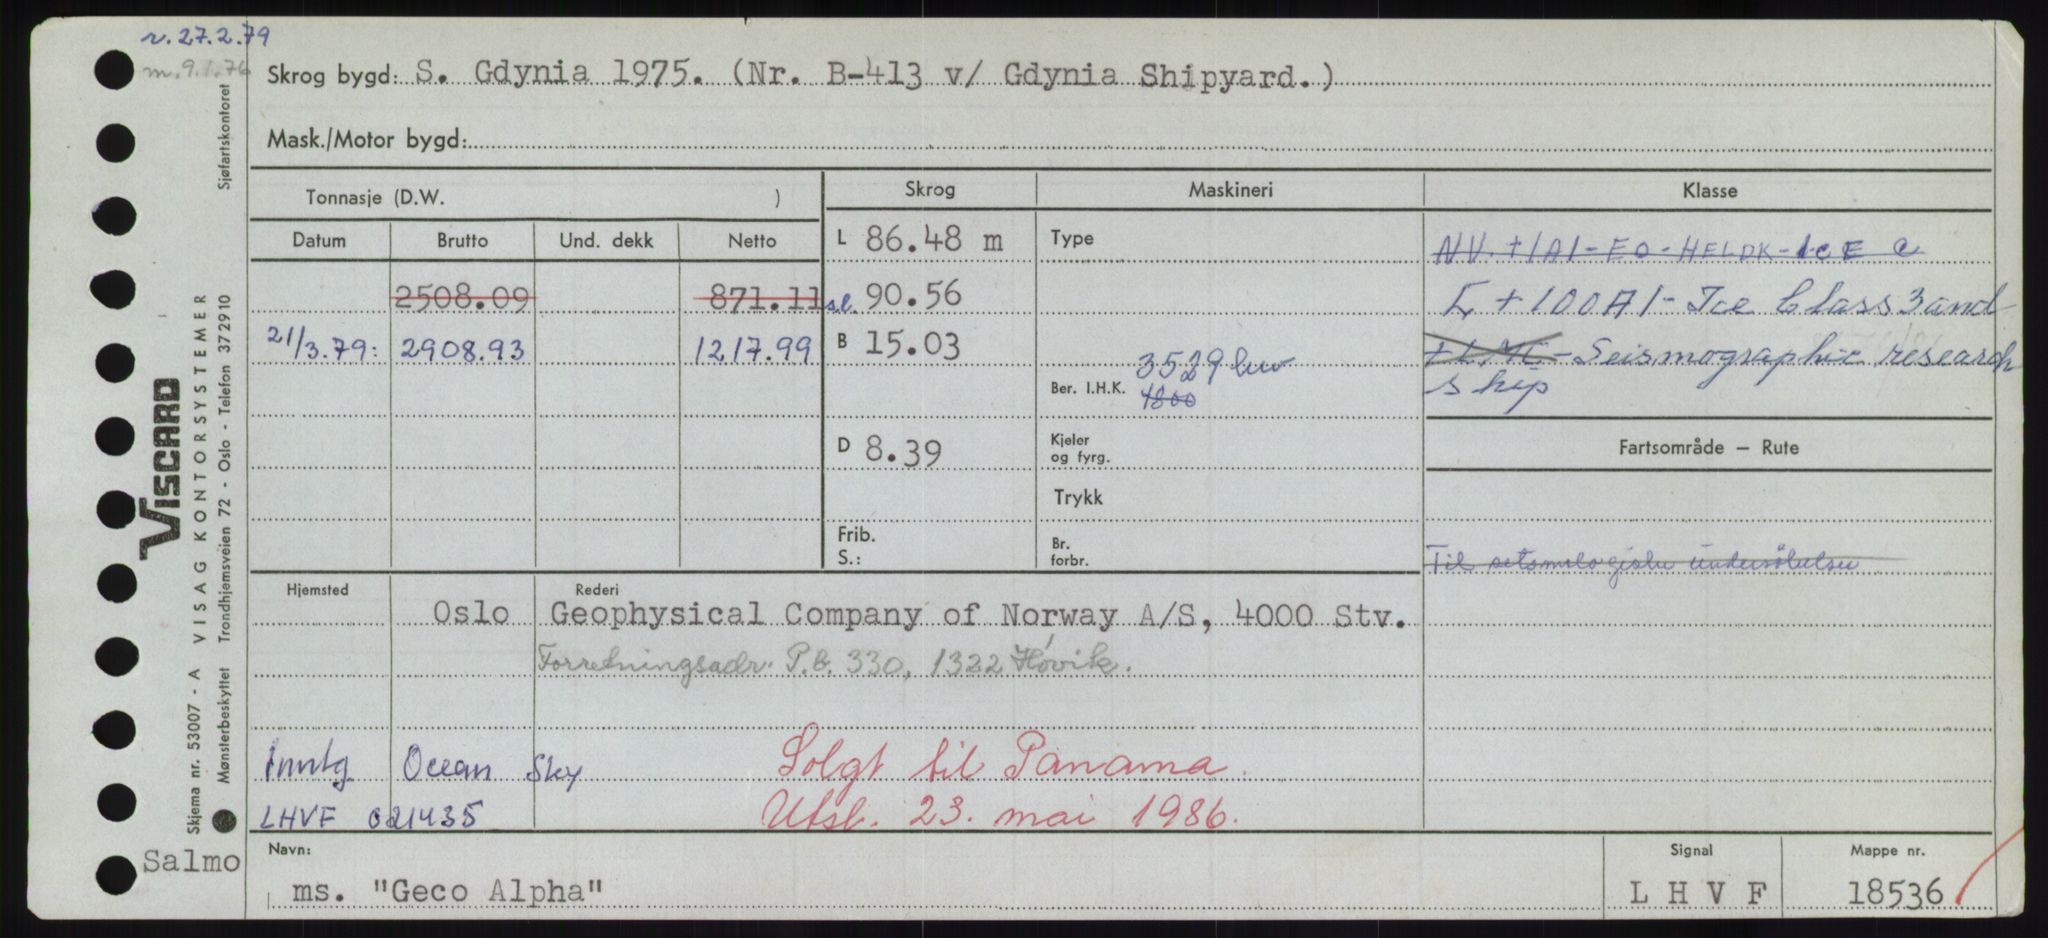 r. 27.2.79
m. 9.1.76
Skrog bygd: S. Gdynia 1975. (Nr. B-413 v/ Gdynia Shipyard.)
Mask./Motor bygd:
Tonnasje (D.W. )
Skrog
Maskineri
Klasse
Datum Brutto Und. dekk Netto
L 86.48 m
Type
NV. +1A1-EO-HELDK-ICE C
2508.09 871.11
s.l. 90.56
+100A1- Ice Class 3 and
21/3.79: 2908.93 1217.99
B 15.03
+LMC - Seismographic research
ship
Ber. I.H.K. 3529
4800
D 8.39
Kjeler
og fyrg.
Fartsområde – Rute
Trykk
Frib.
S.:
Br.
forbr.
Til
Hjemsted
Rederi
Oslo Geophysical Company of Norway A/S, 4000 Stv.
Forretningsadr. P.b. 330, 1322 Høvik.
Inntg Ocean Sky
Solgt til Panama.
LHVF 021435
Utsl. 23. mai 1986.
Salmo
Navn:
ms. "Geco Alpha"
Signal
LHVF
Mappe nr.
18536
Skjema nr. 53007 - A VISAG KONTORSYSTEMER
VISCARD
Mønsterbeskyttet Trondhjemsveien 72 - Oslo - Telefon 37 29 10 Sjøfartskontoret